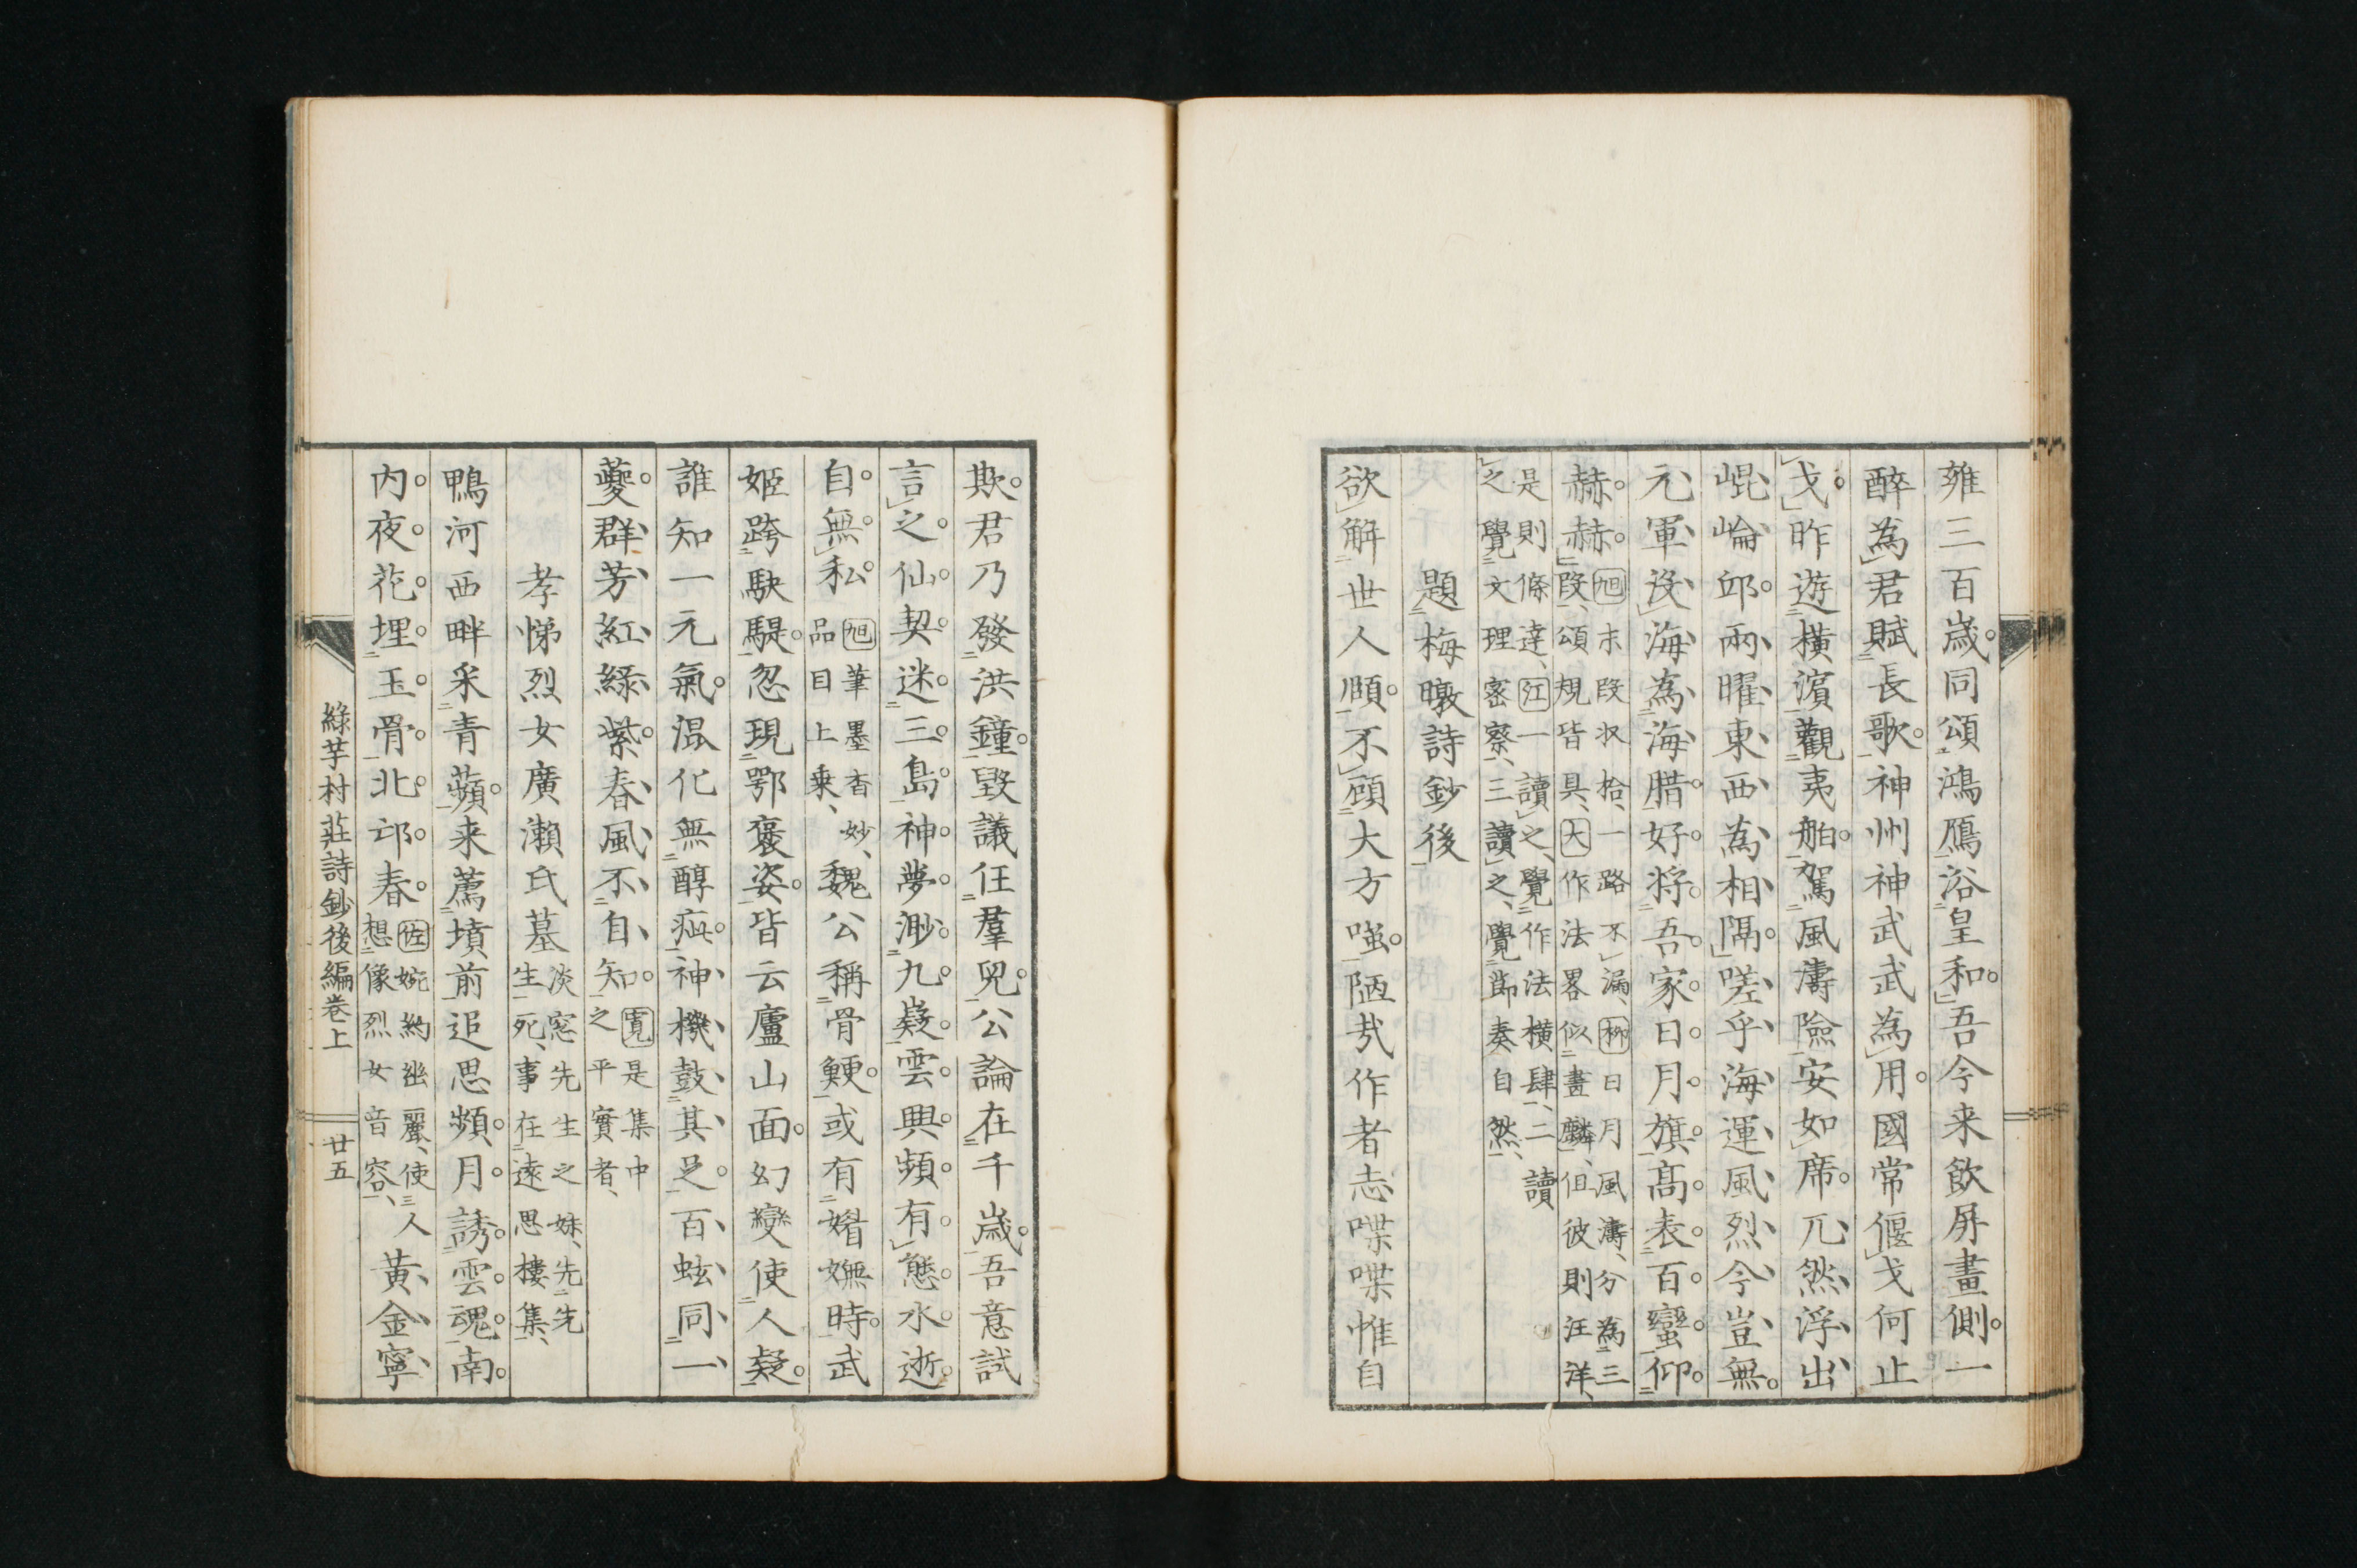 雍三百歳同頌鴻鴈浴皇和吾今来飲屏畫側一
醉為君賦長歌神州神武武為用國常偃戈何止
戈昨遊橫濵觀夷舶駕風濤險安如席兀然浮出
崐崘邱兩曜東西為相隔嗟乎海運風烈今豈無
元軍没海為海腊好将吾家日月旗高表百蠻仰
赫赫旭末段収拾一路不漏柳日月風濤分為三
段頌規皆具大作法畧似畫麟但彼則汪洋
是則條達江一讀之覺作法橫肆二讀
之覺文理密察三讀之覺節奏自然
題梅暾詩鈔後
欲解世人頤不顧大方嗤陋㢤作者志喋喋惟自
欺君乃發洪鐘毀議任羣兒公論在千歳吾意試
言之仙契迷三島神夢渺九嶷雲興頻有態水逝
自無私旭筆墨杳妙
品目上乗魏公稱骨鯁或有媚嫵時武
姬跨駃騠忽現鄂褒姿皆云廬山面幻變使人疑
誰知一元氣温化無醇疵神機鼓其足百蚿同一
夔群芳紅綠紫春風不自知寛是集中
之平實者
孝悌烈女廣瀬氏墓淡窓先生之妹先先
生死事在遠思樓集
鴨河西畔采青蘋来薦墳前追思頻月誘雲魂南
内夜花埋玉骨北邙春佐婉約幽麗使人
想像烈女音容黄金寧
綠芋村荘詩鈔後編巻上
廿五